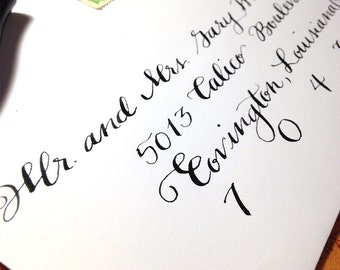 Mr. and Mrs. Gary
5013 Calico Boulevard
Covington, Louisiana
7 0 4 3